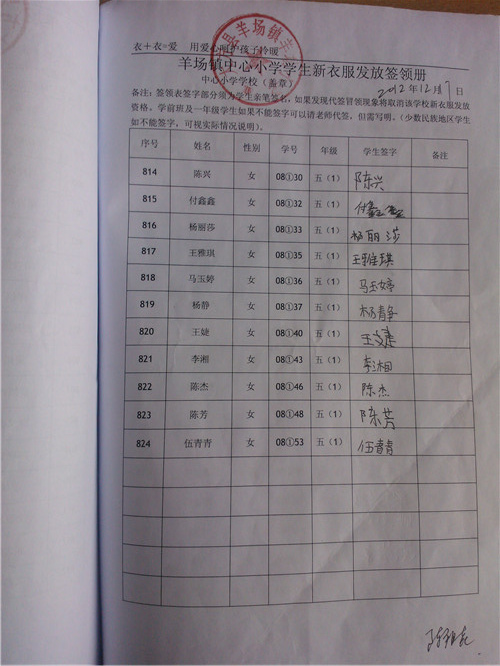 衣+衣=爱 用爱心呵护孩子冷暖
羊场镇中心小学学生新衣服发放签领册
中心小学学校（盖章） 2012年12月17
备注：签领表签字部分须为学生亲笔签名，如果发现代签冒领现象将取消该学校新衣服发放
资格，学前班及一年级学生如果不能签字可以请老师代签，但需写明。（少数民族地区学生
如不能签字，可视实际情况说明）。
序号 姓名 性别 学号 年级 学生签字 备注
814 陈兴 女 08①30 五（1） 陈兴
815 付鑫鑫 女 08①32 五（1） 付鑫鑫
816 杨丽莎 女 08①33 五（1） 杨丽莎
817 王雅琪 女 08①35 五（1） 王雅琪
818 马玉婷 女 08①36 五（1） 马玉婷
819 杨静 女 08①37 五（1） 杨静
820 王婕 女 08①40 五（1） 王婕
821 李湘 女 08①43 五（1） 李湘
822 陈杰 女 08①46 五（1） 陈杰
823 陈芳 女 08①48 五（1） 陈芳
824 伍青青 女 08①53 五（1） 伍青青